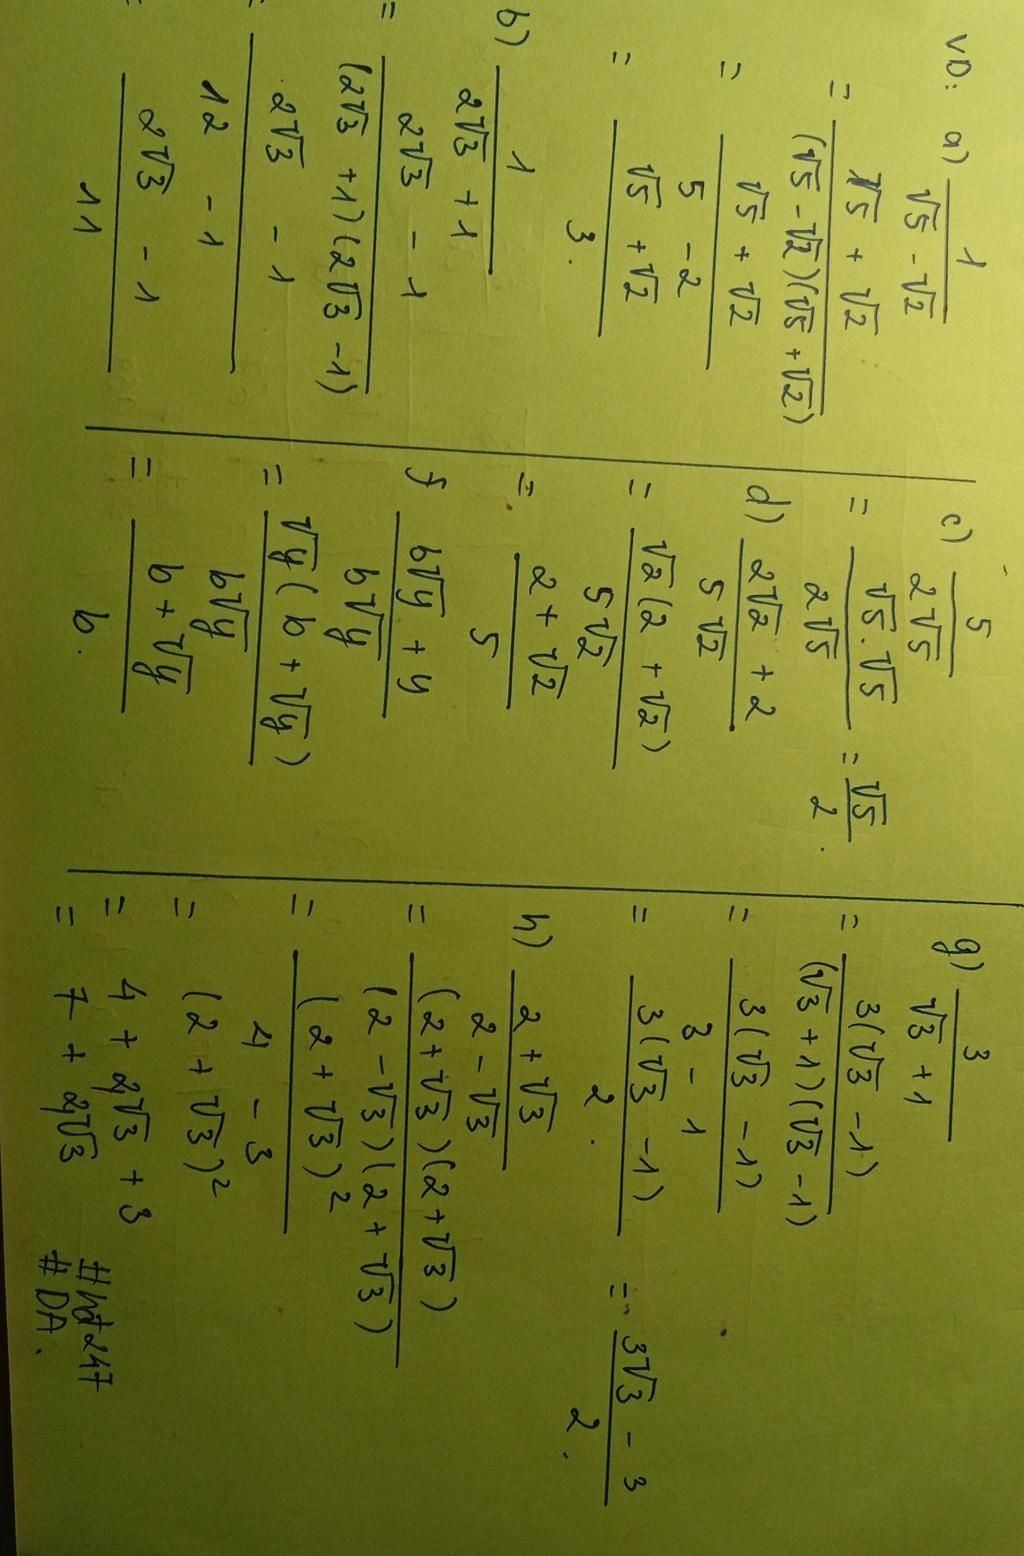 VD: a) 1/(√5 - √2)
= (√5 + √2)/((√5 - √2)(√5 + √2))
= (√5 + √2)/(5 - 2)
= (√5 + √2)/3.
b) 1/(2√3 + 1)
= (2√3 - 1)/((2√3 + 1)(2√3 - 1))
= (2√3 - 1)/(12 - 1)
= (2√3 - 1)/11
c) 5/(2√5)
= (√5.√5)/(2√5) = √5/2.
d) (2√2 + 2)/(5√2)
= (√2(2 + √2))/(5√2)
= (2 + √2)/5
f (b√y + y)/(b√y)
= (√y(b + √y))/(b√y)
= (b + √y)/b.
g) 3/(√3 + 1)
= (3(√3 - 1))/((√3 + 1)(√3 - 1))
= (3(√3 - 1))/(3 - 1)
= (3(√3 - 1))/2. = (3√3 - 3)/2.
h) (2 + √3)/(2 - √3)
= ((2 + √3)(2 + √3))/((2 - √3)(2 + √3))
= (2 + √3)²/(4 - 3)
= (2 + √3)²
= 4 + 2√3 + 3
= 7 + 2√3
#hđ247
#DA.